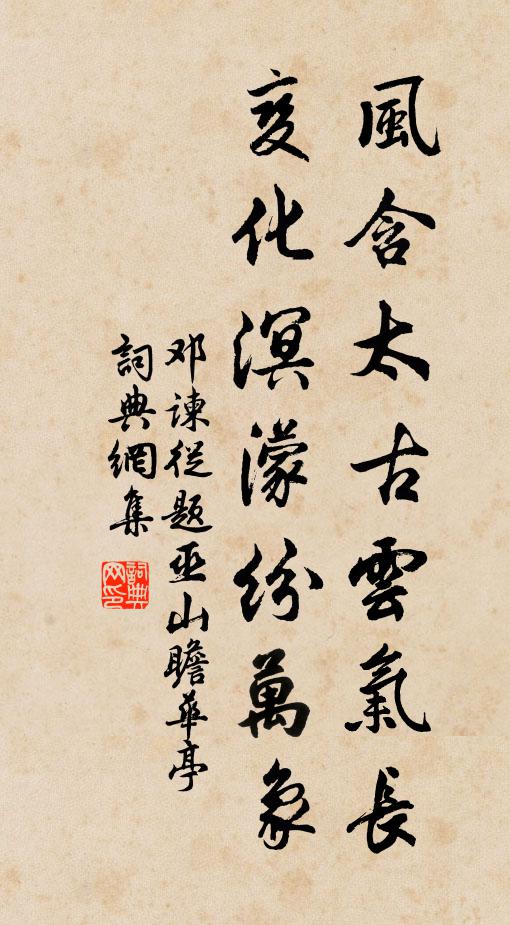 風含太古雲氣長
变化溟濛紛萬象
邓谏從题巫山瞻華亭
詞典網集
詞典網印